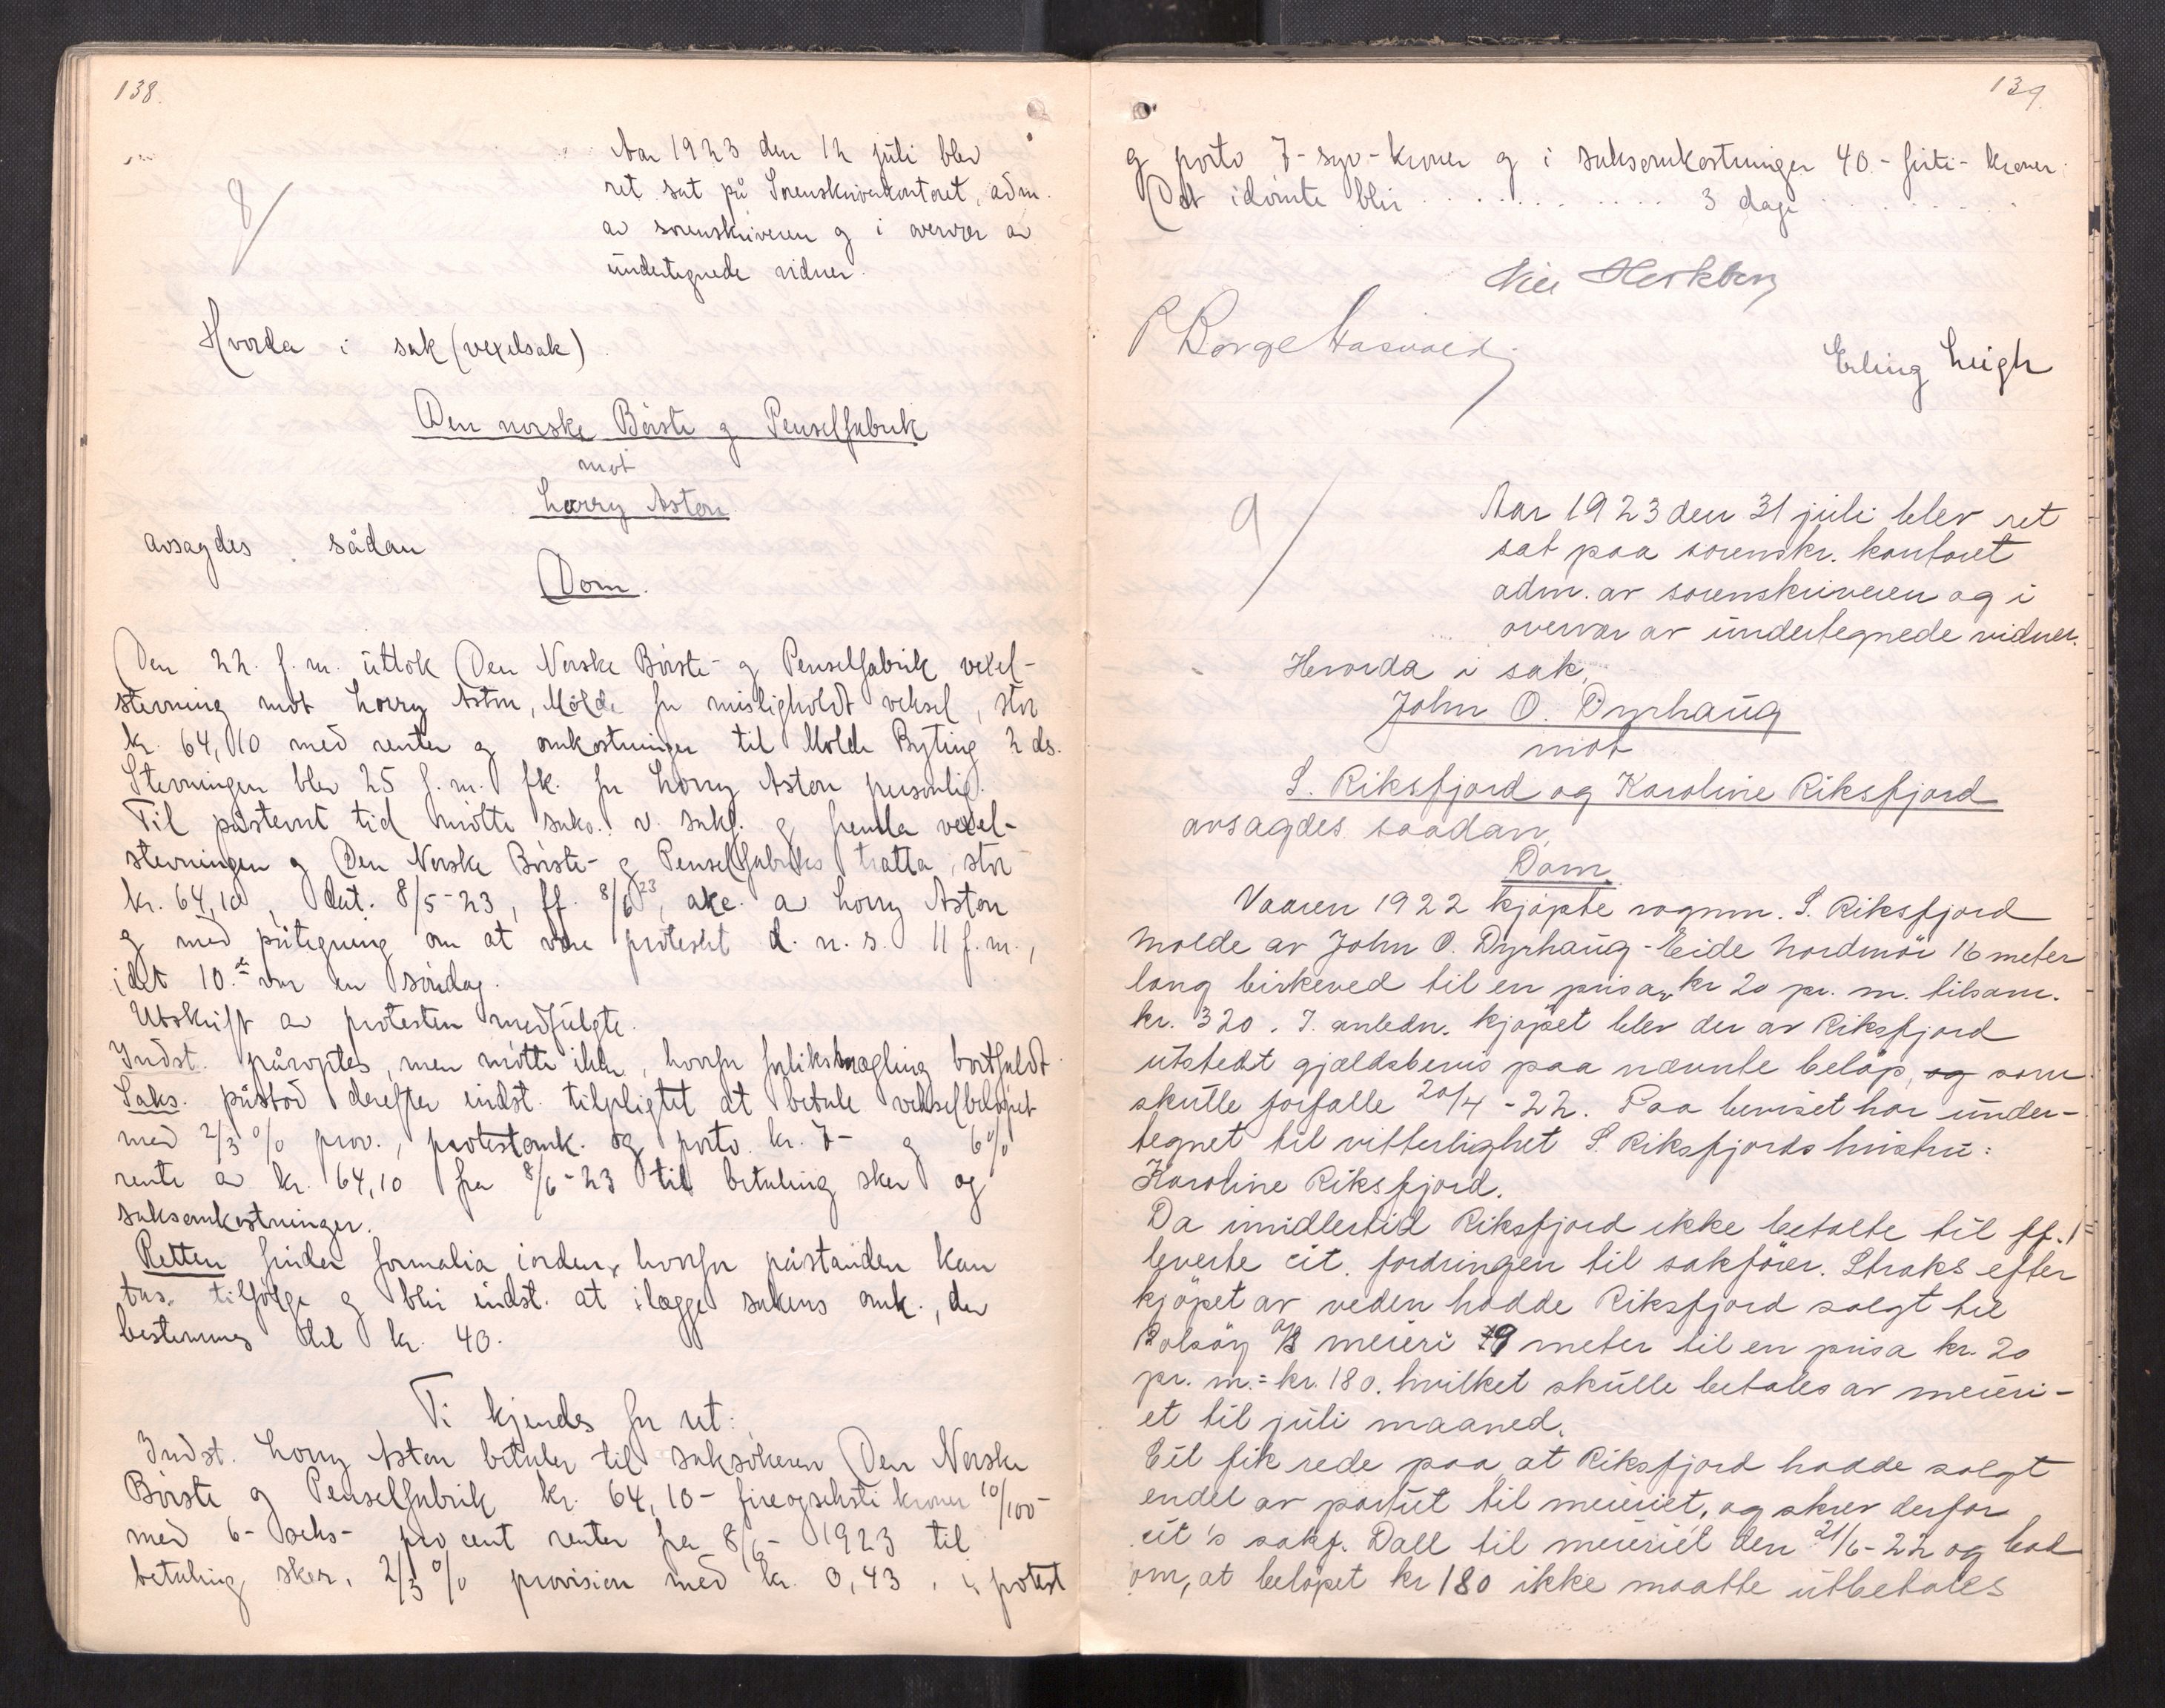 138.
Aar 1923 den 12 juli blev
ret sat på Sorenskriverkontoret, adm.
av sorenskriveren og i overvær av
undertegnede vidner.
8/
Hvorda i sak (vexelsak)
Den norske Børste og Penselfabrik
mot
Harry Aston
avsagdes sådan
Dom.
Den 22. f.m. uttok Den Norske Børste- og Penselfabrik vexel-
stevning mot Harry Aston, Molde for misligholdt veksel, stor
kr. 64,10 med renter og omkostninger til Molde Byting 2 ds.
Stevningen blev 25 f.m. fk. for Harry Aston personlig.
Til påstevnt tid møtte saks. v. sakf. og fremla vexel-
stevningen og Den Norske Børste- og Penselfabriks tratta, stor
kr. 64,10, dat. 8/5-23, ff. 8/6 23, akc. av Harry Aston
og med påtegning om at være protestert d. n. s. 11 f.m.,
idet 10.de var en søndag.
Utskrift av protesten medfulgte.
Indst. påroptes, men møtte ikke, hvorfor forliksmægling bortfaldt.
Saks. påstod derefter indst. tilpligtet at betale vekselbeløpet
med 2/3 % prov., protestomk. og porto kr. 7- og 6%
rente av kr. 64,10 fra 8/6-23 til betaling sker og
saksomkostninger.
Retten finder formalia iorden, hvorfor påstanden kan
tas tilfølge og blir indst. at ilægge sakens omk., der
bestemmes til kr. 40.
Ti kjendes for ret:
Indst. Harry Aston betaler til saksøkeren Den Norske
Børste og Penselfabrik kr. 64,10- fireogseksti kroner 10/100-
med 6- seks- procent renter fra 8/6- 1923 til
betaling sker, 2/3 % provision med kr. 0,43, i protest
139.
og porto 7-syv-kroner og i saksomkostninger 40.-firti-kroner.
Det idømte blir . . . . . . . . . . . 3 dage . . . . . . . .
Erling Leigh
9/
Aar 1923 den 31 juli blev ret
sat paa sorenskr. kontoret
adm. av sorenskriveren og i
overvær av undertegnede vidner.
Hvorda i sak,
John O. Dyrhaug
mot
S. Riksfjord og Karoline Riksfjord
avsagdes saadan,
Dom.
Vaaren 1922 kjøpte vognm. S. Riksfjord
Molde av John O. Dyrhaug - Eide Nordmør 16 meter
lang birkeved til en pris av kr 20 pr. m. tilsam.
kr. 320. I. anledn. kjøpet blev der av Riksfjord
utstedt gjældsbevis paa nævnte beløp, og som
skulle forfalle 20/4-22. Paa beviset har under-
tegnet til vitterlighet S. Riksfjords hustru:
Karoline Riksfjord.
Da imidlertid Riksfjord ikke betalte til ff.,
leverte cit. fordringen til sakfører. Straks efter
kjøpet av veden hadde Riksfjord solgt til
Bolsøy meieri 9 meter til en pris a kr. 20
pr. m. = kr. 180. hvilket skulle betales av meieri-
et til juli maaned.
Cit fik rede paa at Riksfjord hadde solgt
endel av partiet til meieriet, og skrev derfor
cit's sakf. Dall til meieriet den 21/6-22 og bad
om, at beløpet kr 180 ikke maatte utbetales